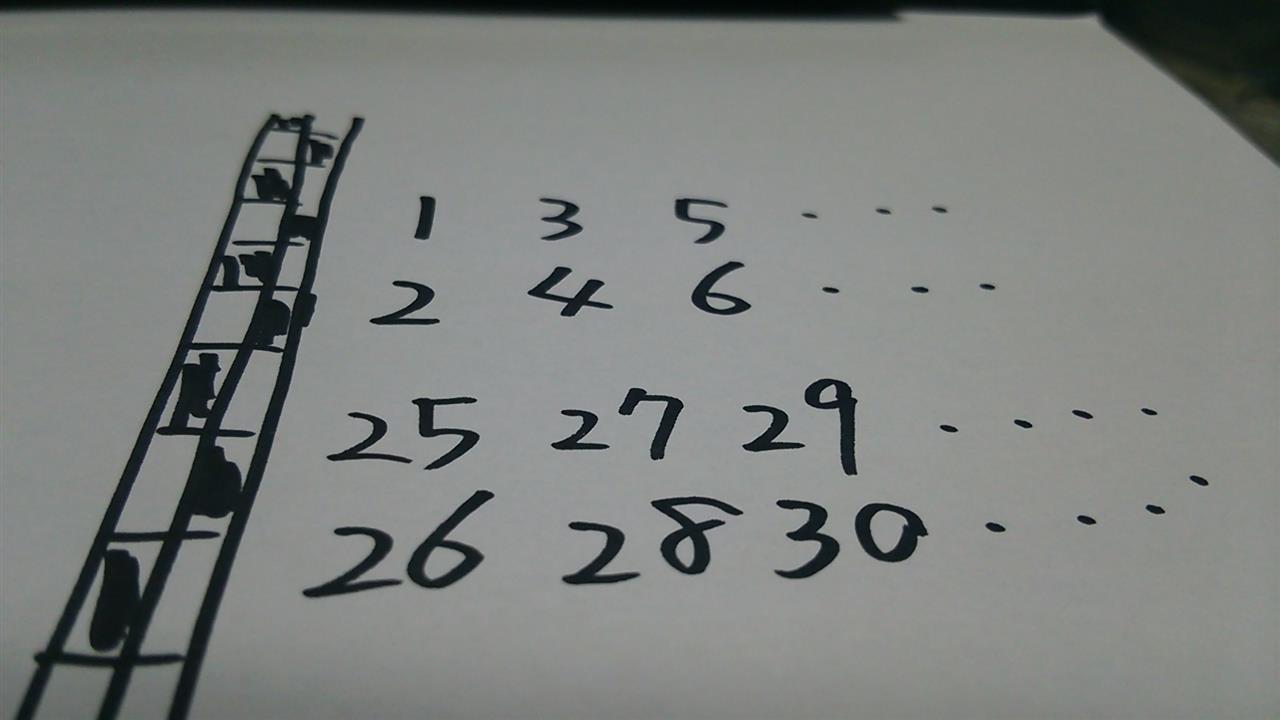 1 3 5 . . .
2 4 6 . . .
25 27 29 . . . .
26 28 30 . . . .